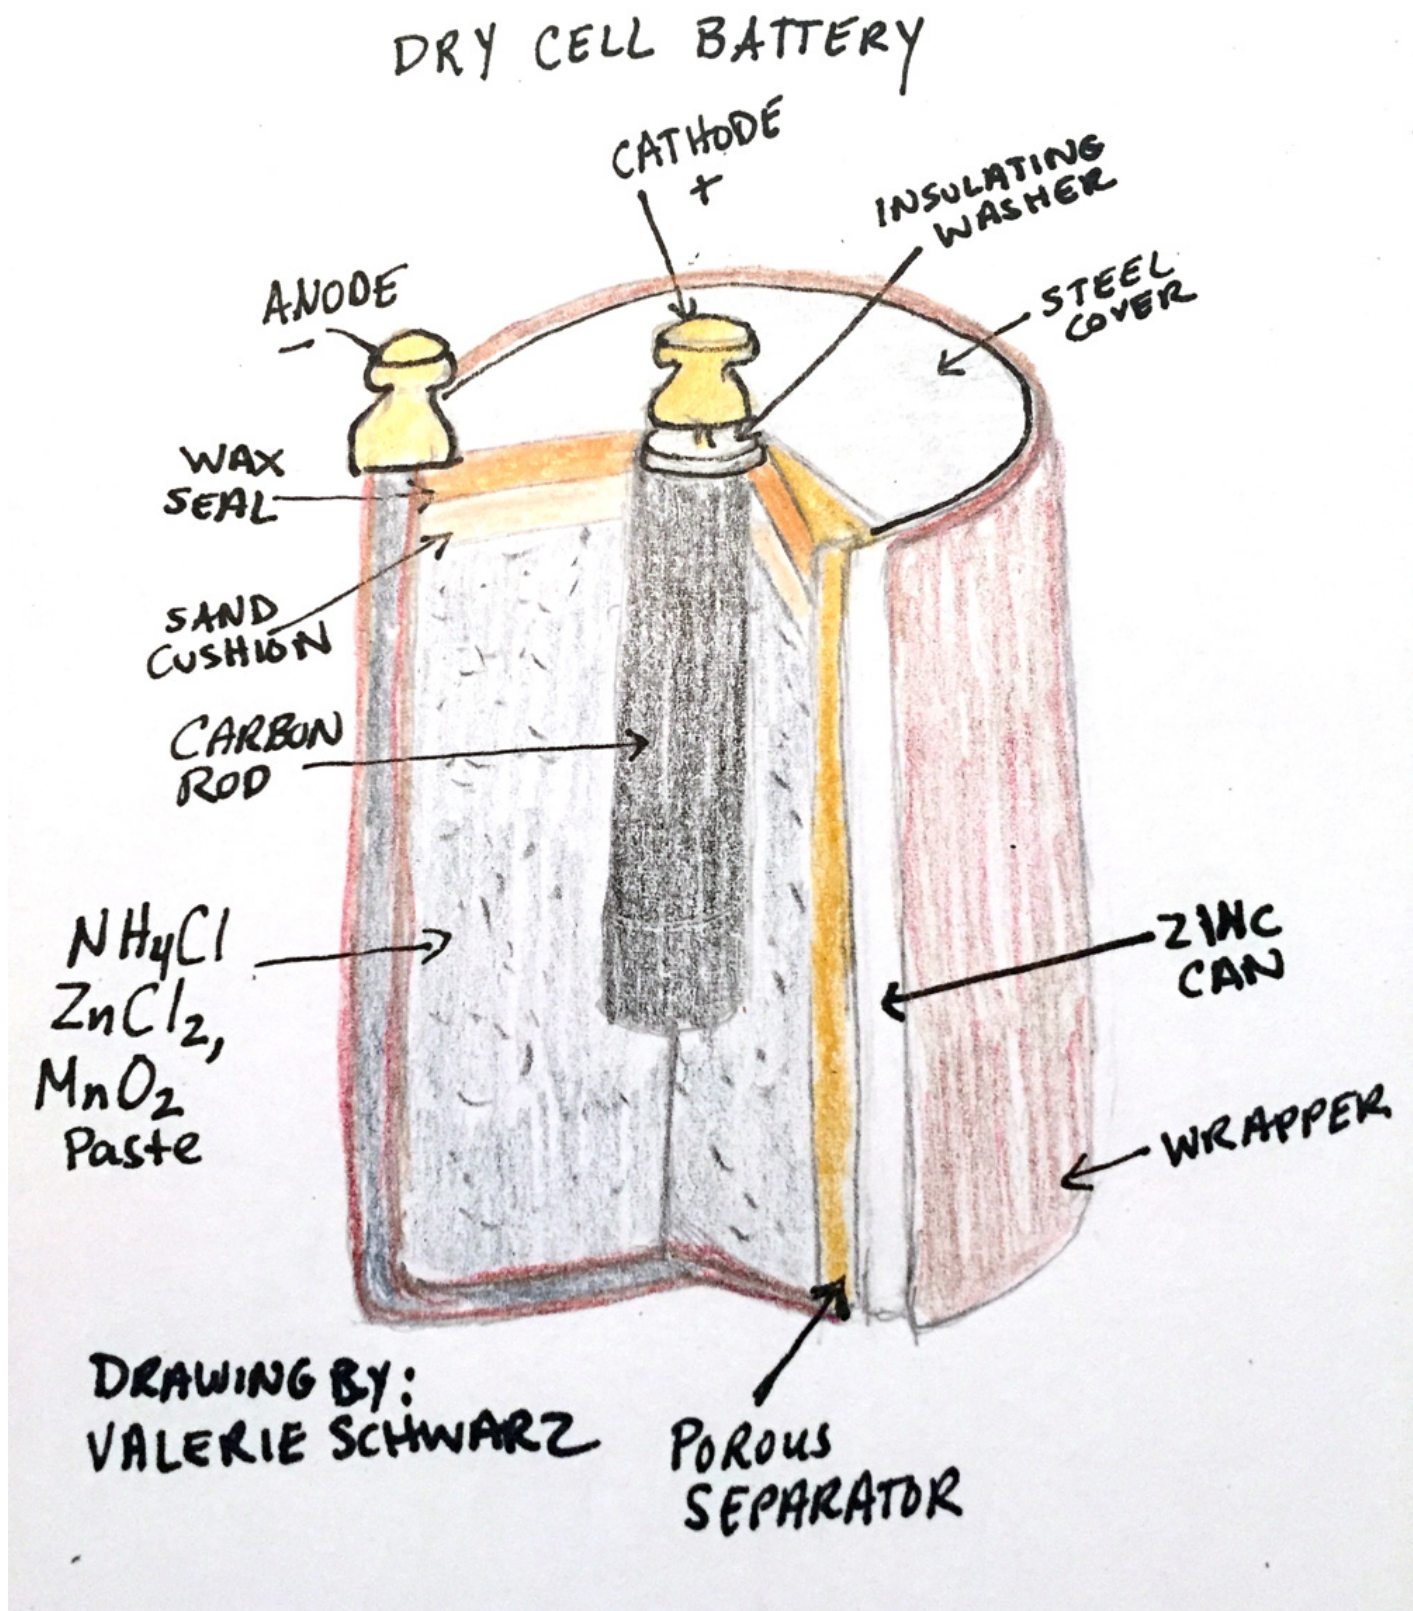 DRY CELL BATTERY
CATHODE
+
INSULATING
WASHER
STEEL
COVER
ANODE
-
WAX
SEAL
SAND
CUSHION
CARBON
ROD
NH4Cl
ZnCl2,
MnO2
Paste
ZINC
CAN
WRAPPER
DRAWING BY:
VALERIE SCHWARZ
POROUS
SEPARATOR